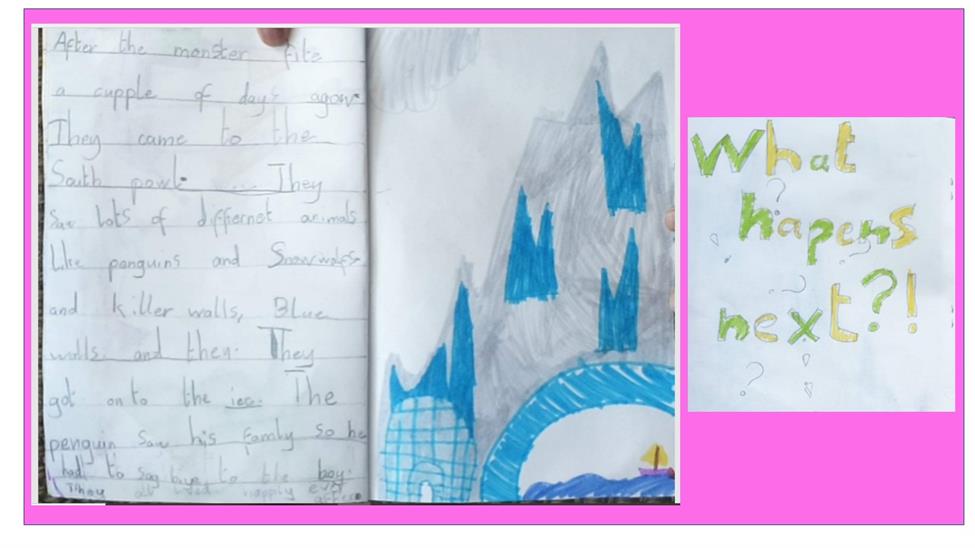 After the monster fite
a cupple of days agow
They came to the
South powl ...... They
saw lots of differnet animals
Like penguins and Snow wolfs
and killer walls, Blue
walls. and then. They
got on to the ice. The
penguin saw his famly so he
had to say bye to the boy.
They all lived happly ever
What
hapens
next?!